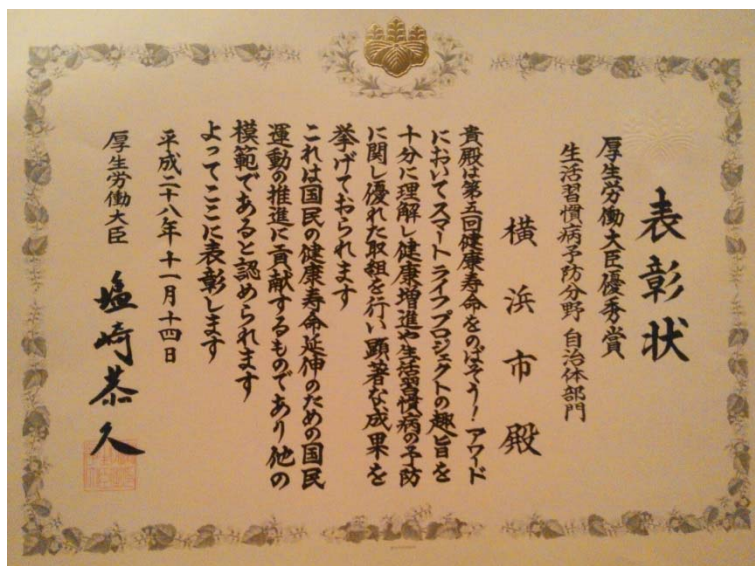 表彰状
厚生労働大臣優秀賞
生活習慣病予防分野 自治体部門
横浜市殿
貴殿は第五回健康寿命をのばそう！アワード
においてスマートライフプロジェクトの趣旨を
十分に理解し健康増進や生活習慣病の予防
に関し優れた取組を行い顕著な成果を
挙げておられます
これは国民の健康寿命延伸のための国民
運動の推進に貢献するものであり他の
模範であると認められます
よってここに表彰します
平成二十八年十一月十四日
厚生労働大臣 塩崎恭久